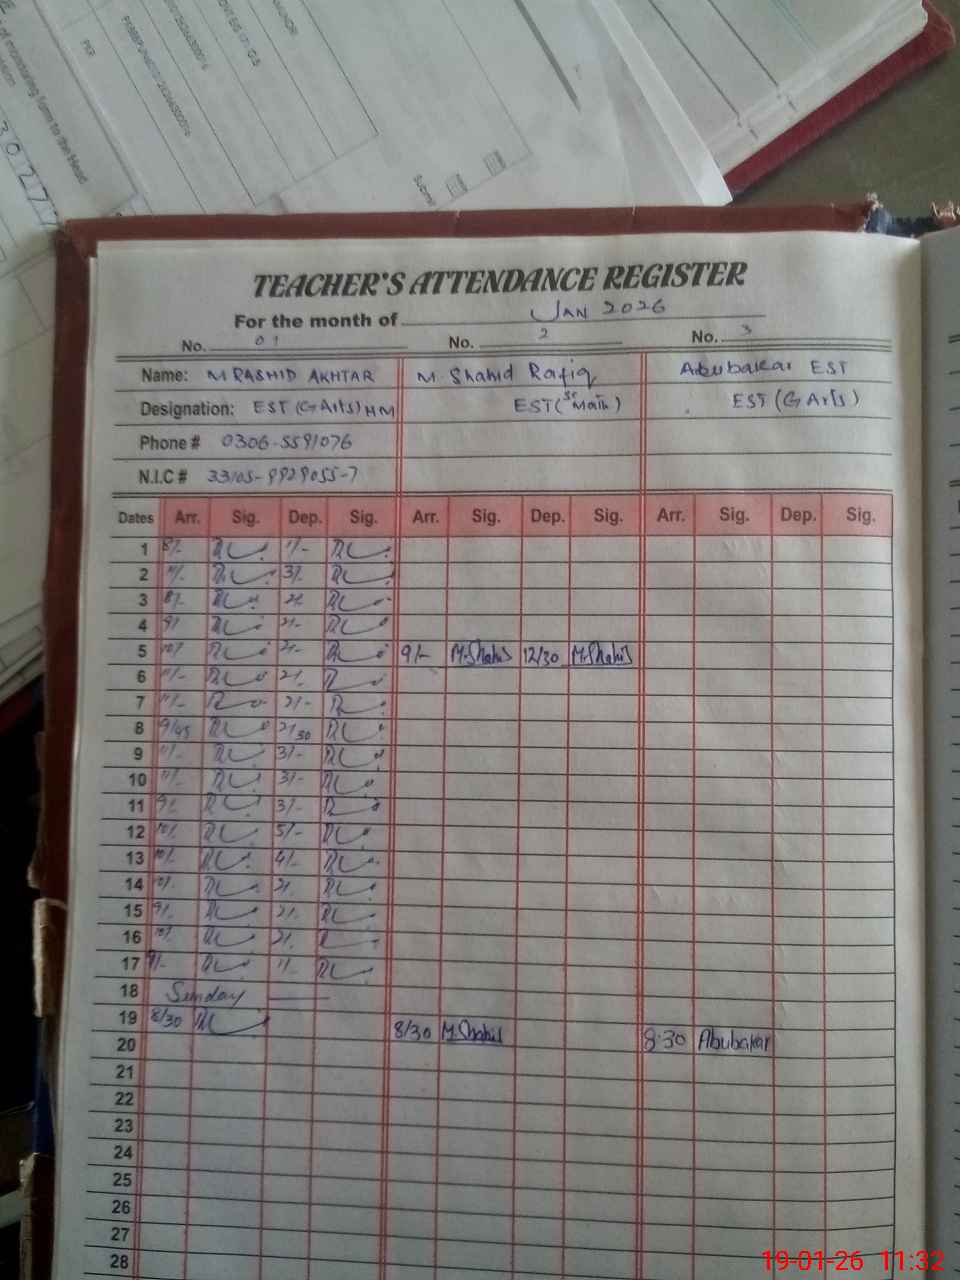 Submit
30277
TEACHER'S ATTENDANCE REGISTER
For the month of JAN 2026
No. 01 No. 2 No. 3
Name: M RASHID AKHTAR M. Shahid Rafiq Abubakar EST
Designation: EST (G Arts) HM EST (Sc Math) EST (G Arts)
Phone # 0306-5591076
N.I.C # 33105-9929055-7
Dates Arr. Sig. Dep. Sig. Arr. Sig. Dep. Sig. Arr. Sig. Dep. Sig.
1 8/- 1/-
2 11/- 3/-
3 8/- 2/-
4 9/- 2/-
5 10/- 2/- 9/- M.Shahid 12/30 M.Shahid
6 11/- 2/-
7 11/- 2/-
8 9/45 2/30
9 11/- 3/-
10 11/- 3/-
11 9/- 3/-
12 10/- 5/-
13 10/- 4/-
14 10/- 2/-
15 9/- 2/-
16 10/- 2/-
17 9/- 1/-
18 Sunday
19 8/30 8/30 M.Shahid 8:30 Abubakar
20
21
22
23
24
25
26
27
28
19-01-26 11:32